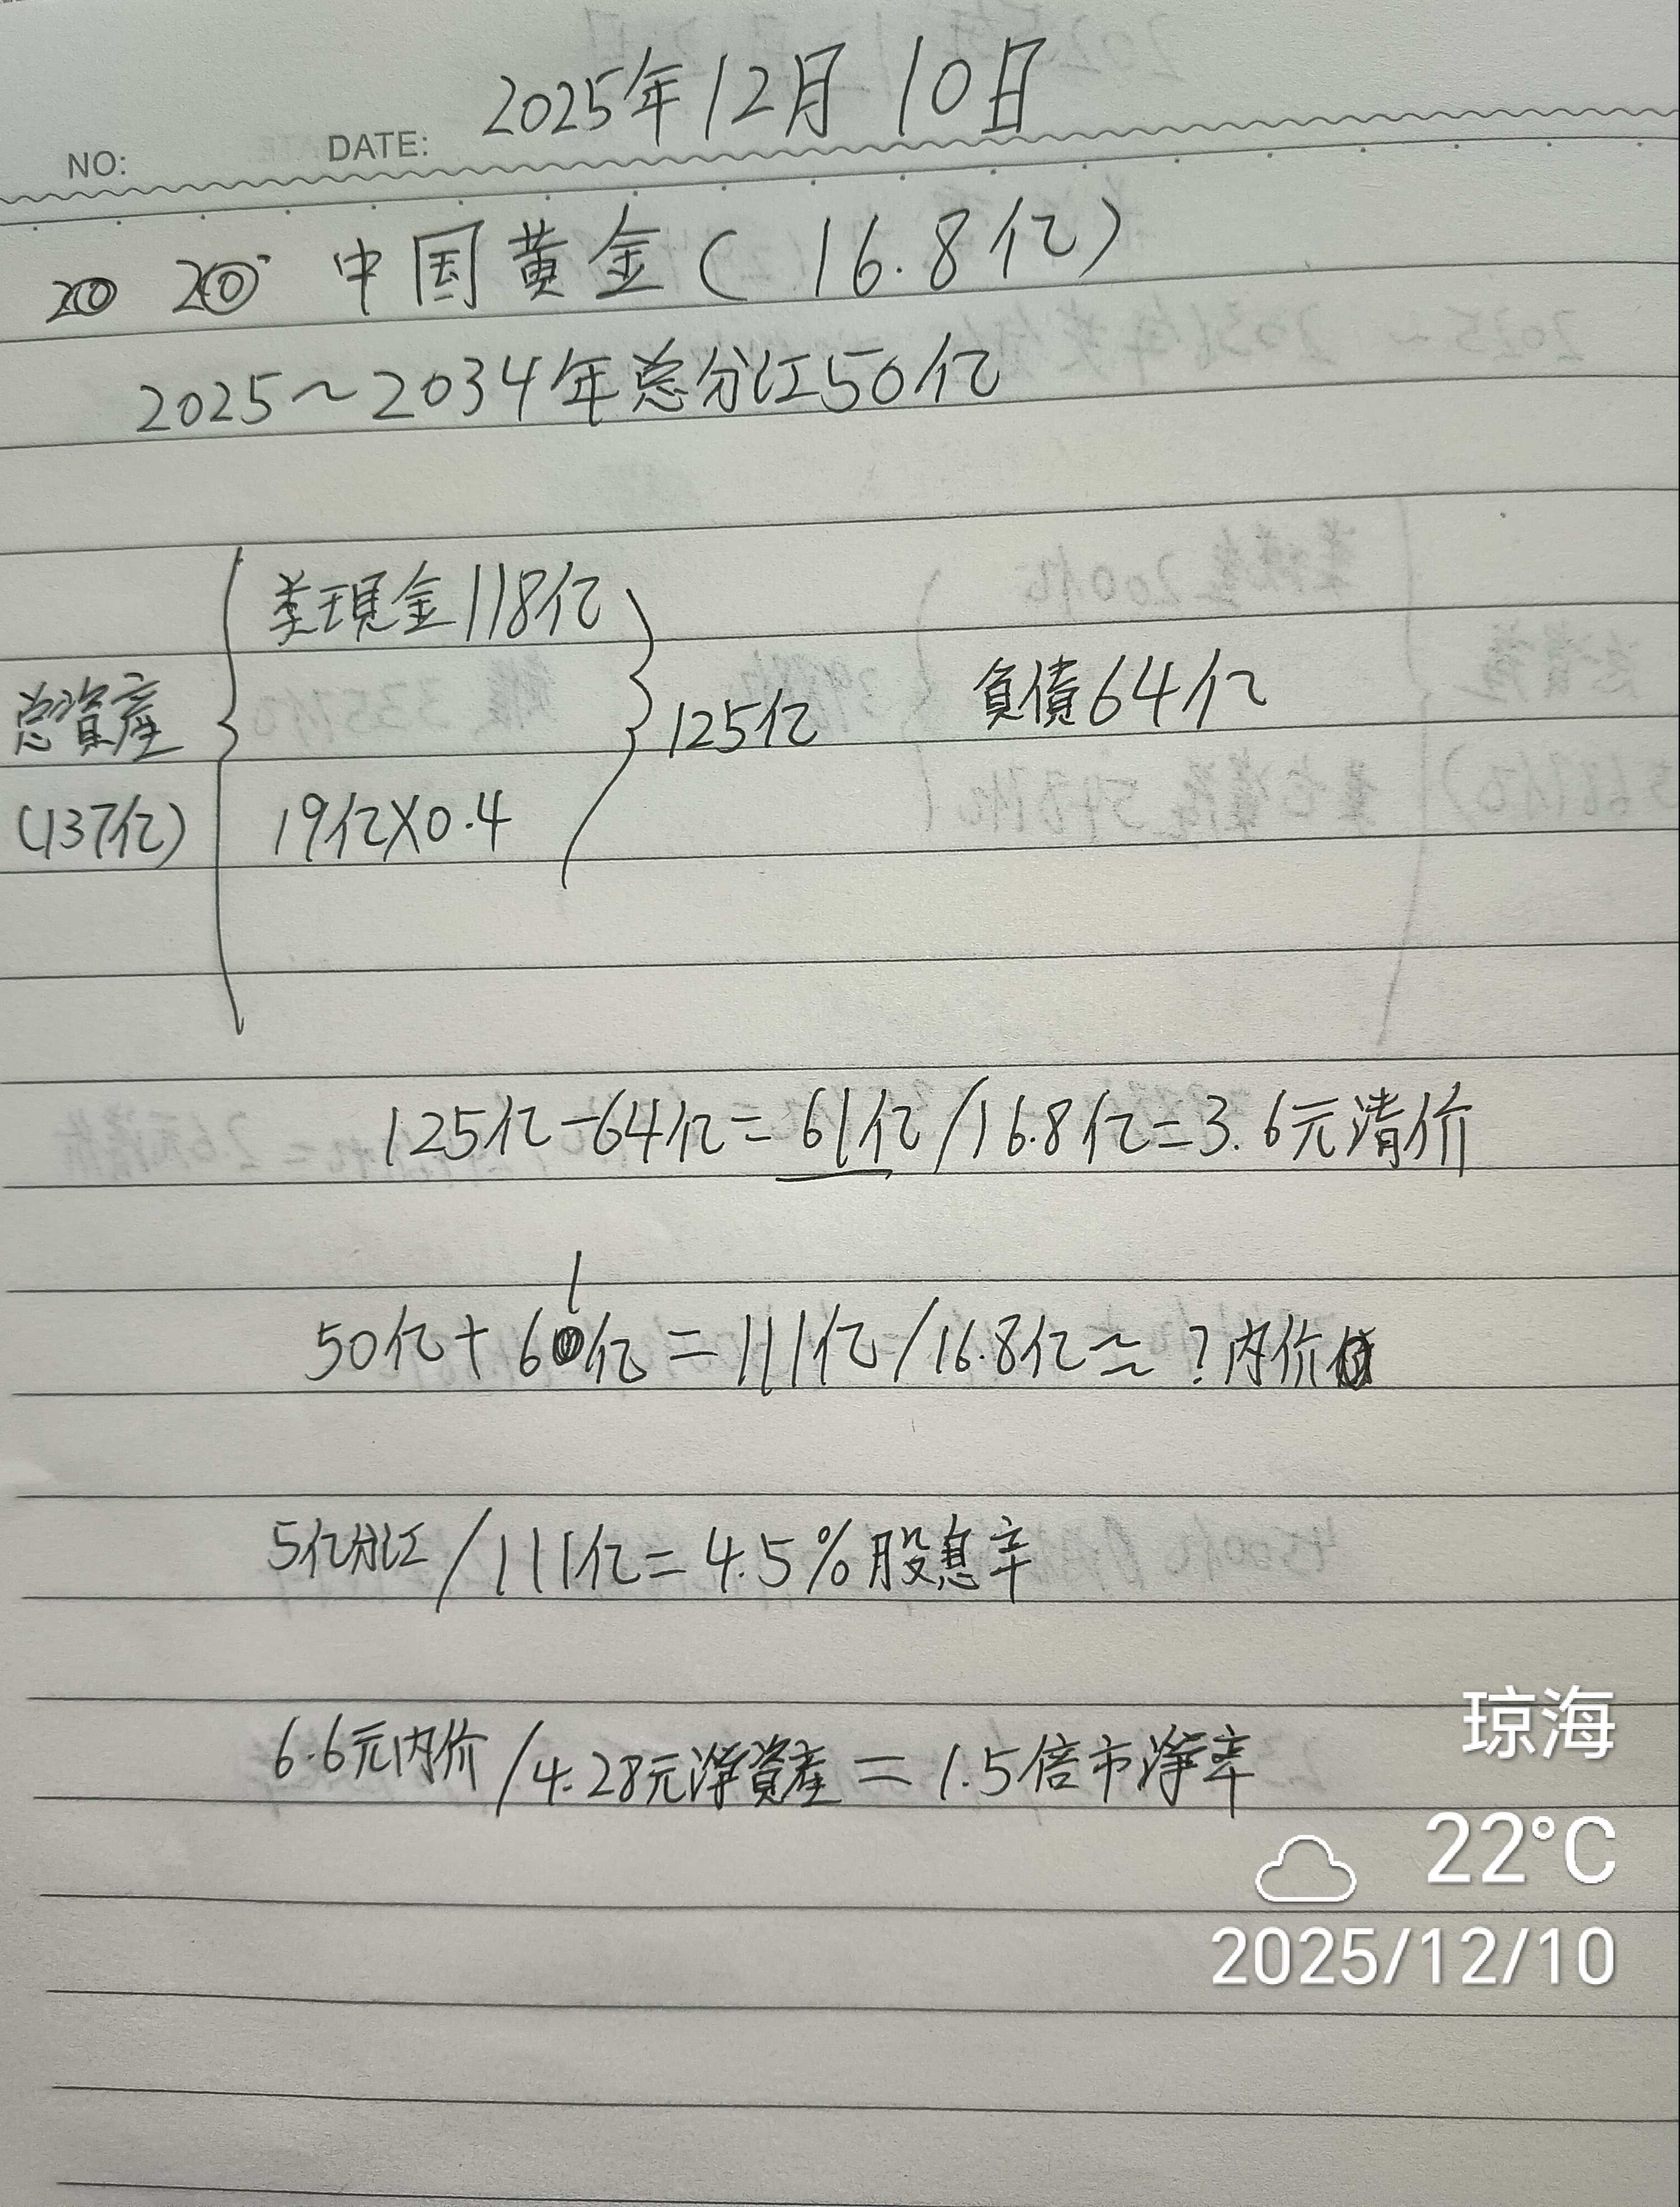 2025年12月10日
NO:
DATE:
20 中国黄金（16.8亿）
2025～2034年总分红50亿
类現金118亿
总資産
125亿
負債64亿
(137亿)
19亿×0.4
125亿-64亿=61亿/16.8亿=3.6元清价
50亿+61亿=111亿/16.8亿≈?内价
5亿分红/111亿=4.5%股息率
6.6元内价/4.28元淨資産=1.5倍市淨率
琼海
22°C
2025/12/10